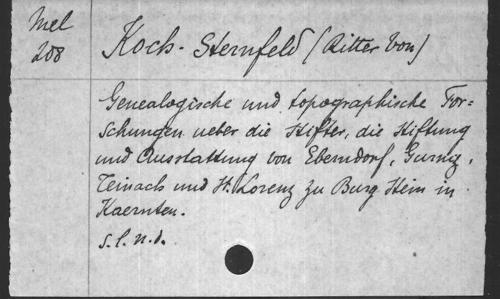 Mel
208
Koch-Sternfeld (Ritter von)
Genealogische und topographische For=
schungen ueber die Stifter, die Stiftung
und Ausstattung von Eberndorf, Gurniz,
Teinach und St. Lorenz zu Burg Stein in
Kaernten.
s. l. n. d.